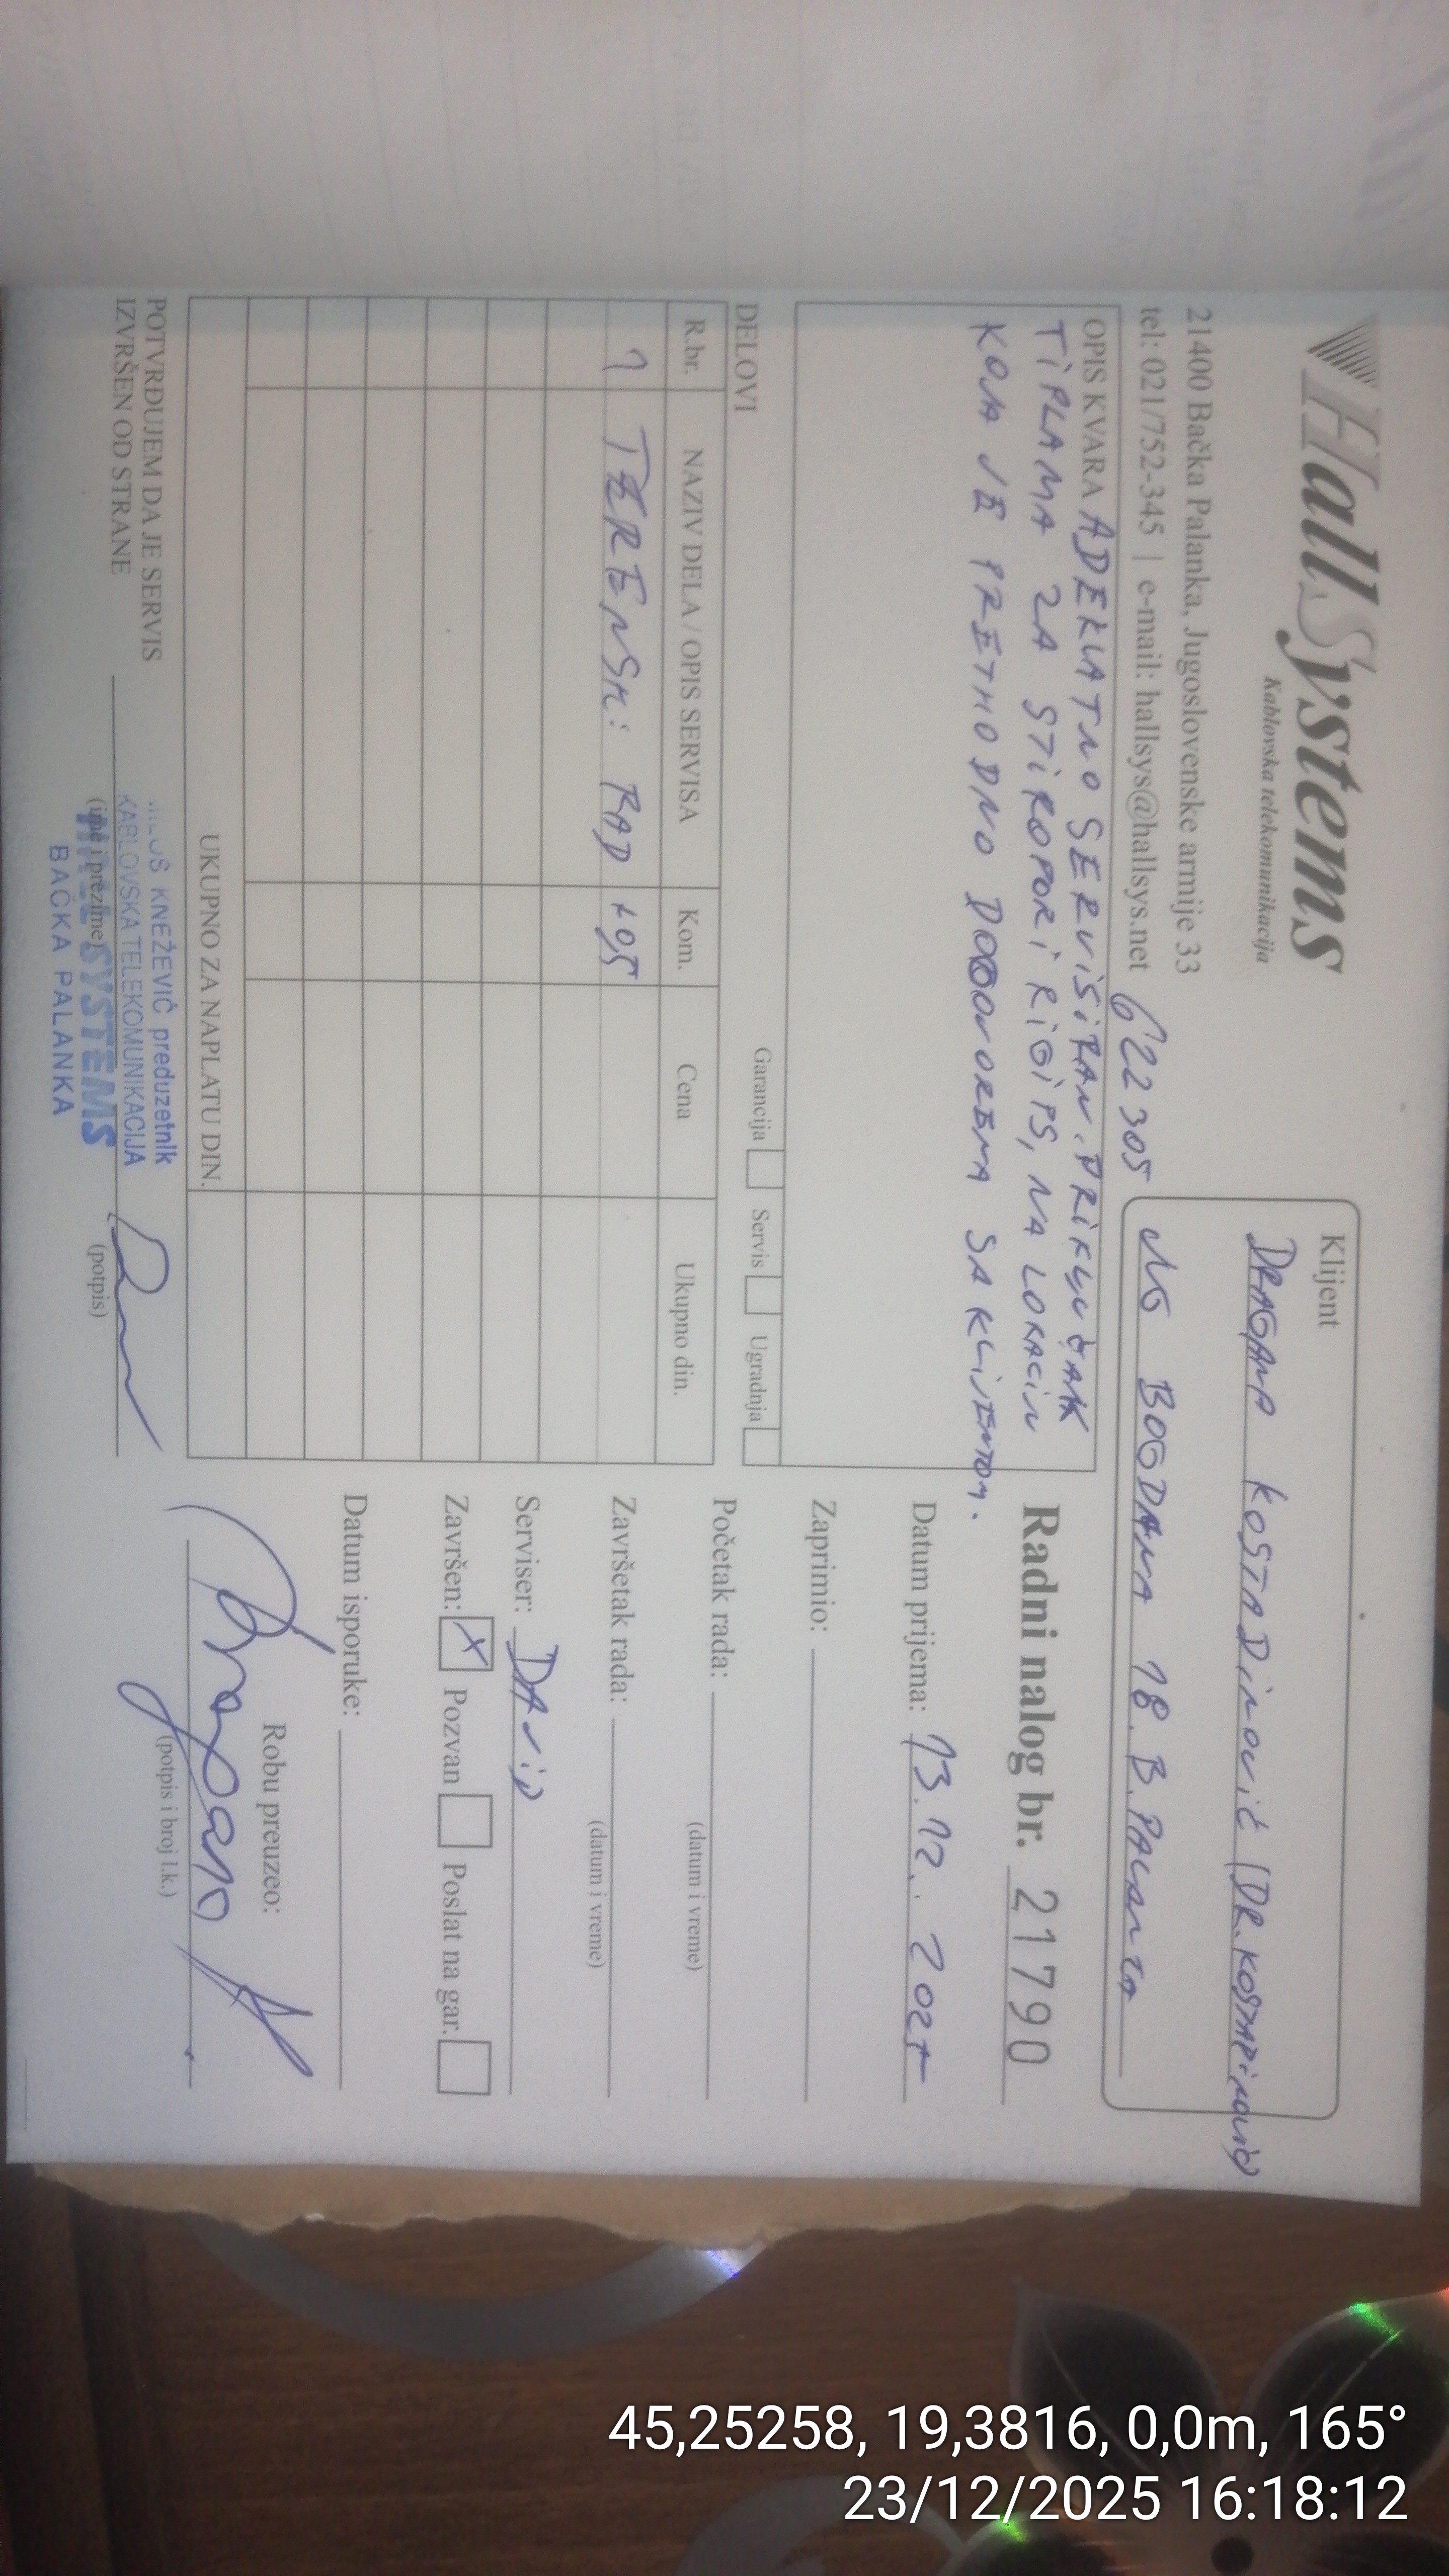 HallSystems
Kablovska telekomunikacija
21400 Bačka Palanka, Jugoslovenske armije 33
tel: 021/752-345 | e-mail: hallsys@hallsys.net 622305
Klijent
DRAGANA KOSTADINOVIĆ (DR. KOSTADINOVIĆ)
BOGDANA 18. B. PALANKA
OPIS KVARA ADEKVATNO SERVISIRAN. PRIKLJUČAK
TIPLAMA ZA STIROPOR I RIGIPS, NA LOKACIJU
KOJA JE PRETHODNO DOGOVORENA SA KLIJENTOM.
Garancija Servis Ugradnja
DELOVI
R.br. NAZIV DELA / OPIS SERVISA Kom. Cena Ukupno din.
1 TERENSKI RAD +0,5
UKUPNO ZA NAPLATU DIN.
POTVRĐUJEM DA JE SERVIS
IZVRŠEN OD STRANE
(ime i prezime)
(potpis)
KNEŽEVIĆ preduzetnik
KABLOVSKA TELEKOMUNIKACIJA
SYSTEMS
BAČKA PALANKA
Radni nalog br. 21790
Datum prijema: 13.12.
Zaprimio:
Početak rada:
(datum i vreme)
Završetak rada:
(datum i vreme)
Serviser: DAVID
Završen: X Pozvan Poslat na gar.
Datum isporuke:
Robu preuzeo:
(potpis i broj l.k.)
45,25258, 19,3816, 0,0m, 165°
23/12/2025 16:18:12